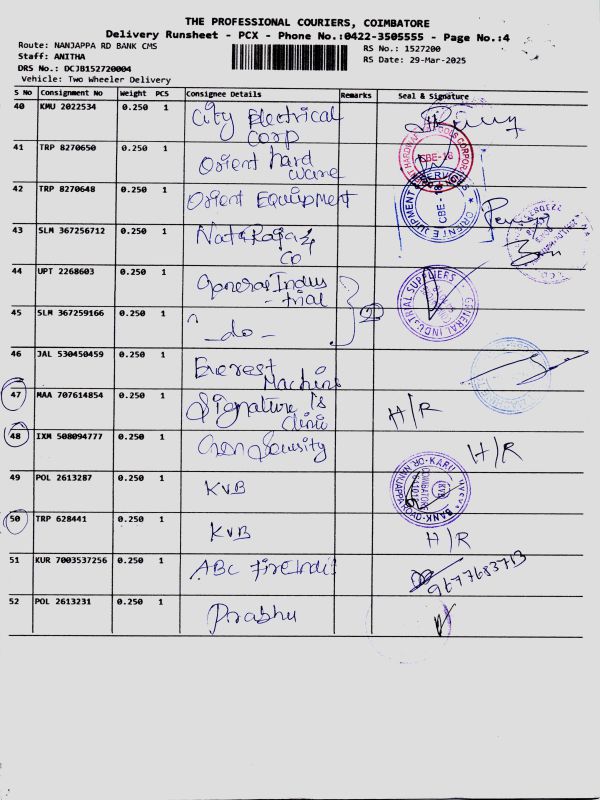 THE PROFESSIONAL COURIERS, COIMBATORE
Delivery Runsheet - PCX - Phone No.:0422-3505555 - Page No.:4
Route: NANJAPPA RD BANK CMS
RS No.: 1527200
Staff: ANITHA
RS Date: 29-Mar-2025
DRS No.: DCJB152720004
Vehicle: Two Wheeler Delivery
S No Consignment No Weight PCS Consignee Details Remarks Seal & Signature
40 KMU 2022534 0.250 1 City Electrical
Corp
41 TRP 8270650 0.250 1 Orient hard
ware
42 TRP 8270648 0.250 1 Orient Equipment
43 SLM 367256712 0.250 1 Nataraja &
Co
44 UPT 2268603 0.250 1 General Indus
- trial
45 SLM 367259166 0.250 1 " - do - 2
46 JAL 530450459 0.250 1 Everest
Machins
47 MAA 707614854 0.250 1 Signature is H/R
clinic
48 IXM 508094777 0.250 1 Security H/R
49 POL 2613287 0.250 1 KVB
50 TRP 628441 0.250 1 KVB H/R
51 KUR 7003537256 0.250 1 ABC FireIndi 9677683713
52 POL 2613231 0.250 1 Prabhu
CBE-18
GENERAL INDUSTRIAL SUPPLIERS
KVB
COIMBATORE